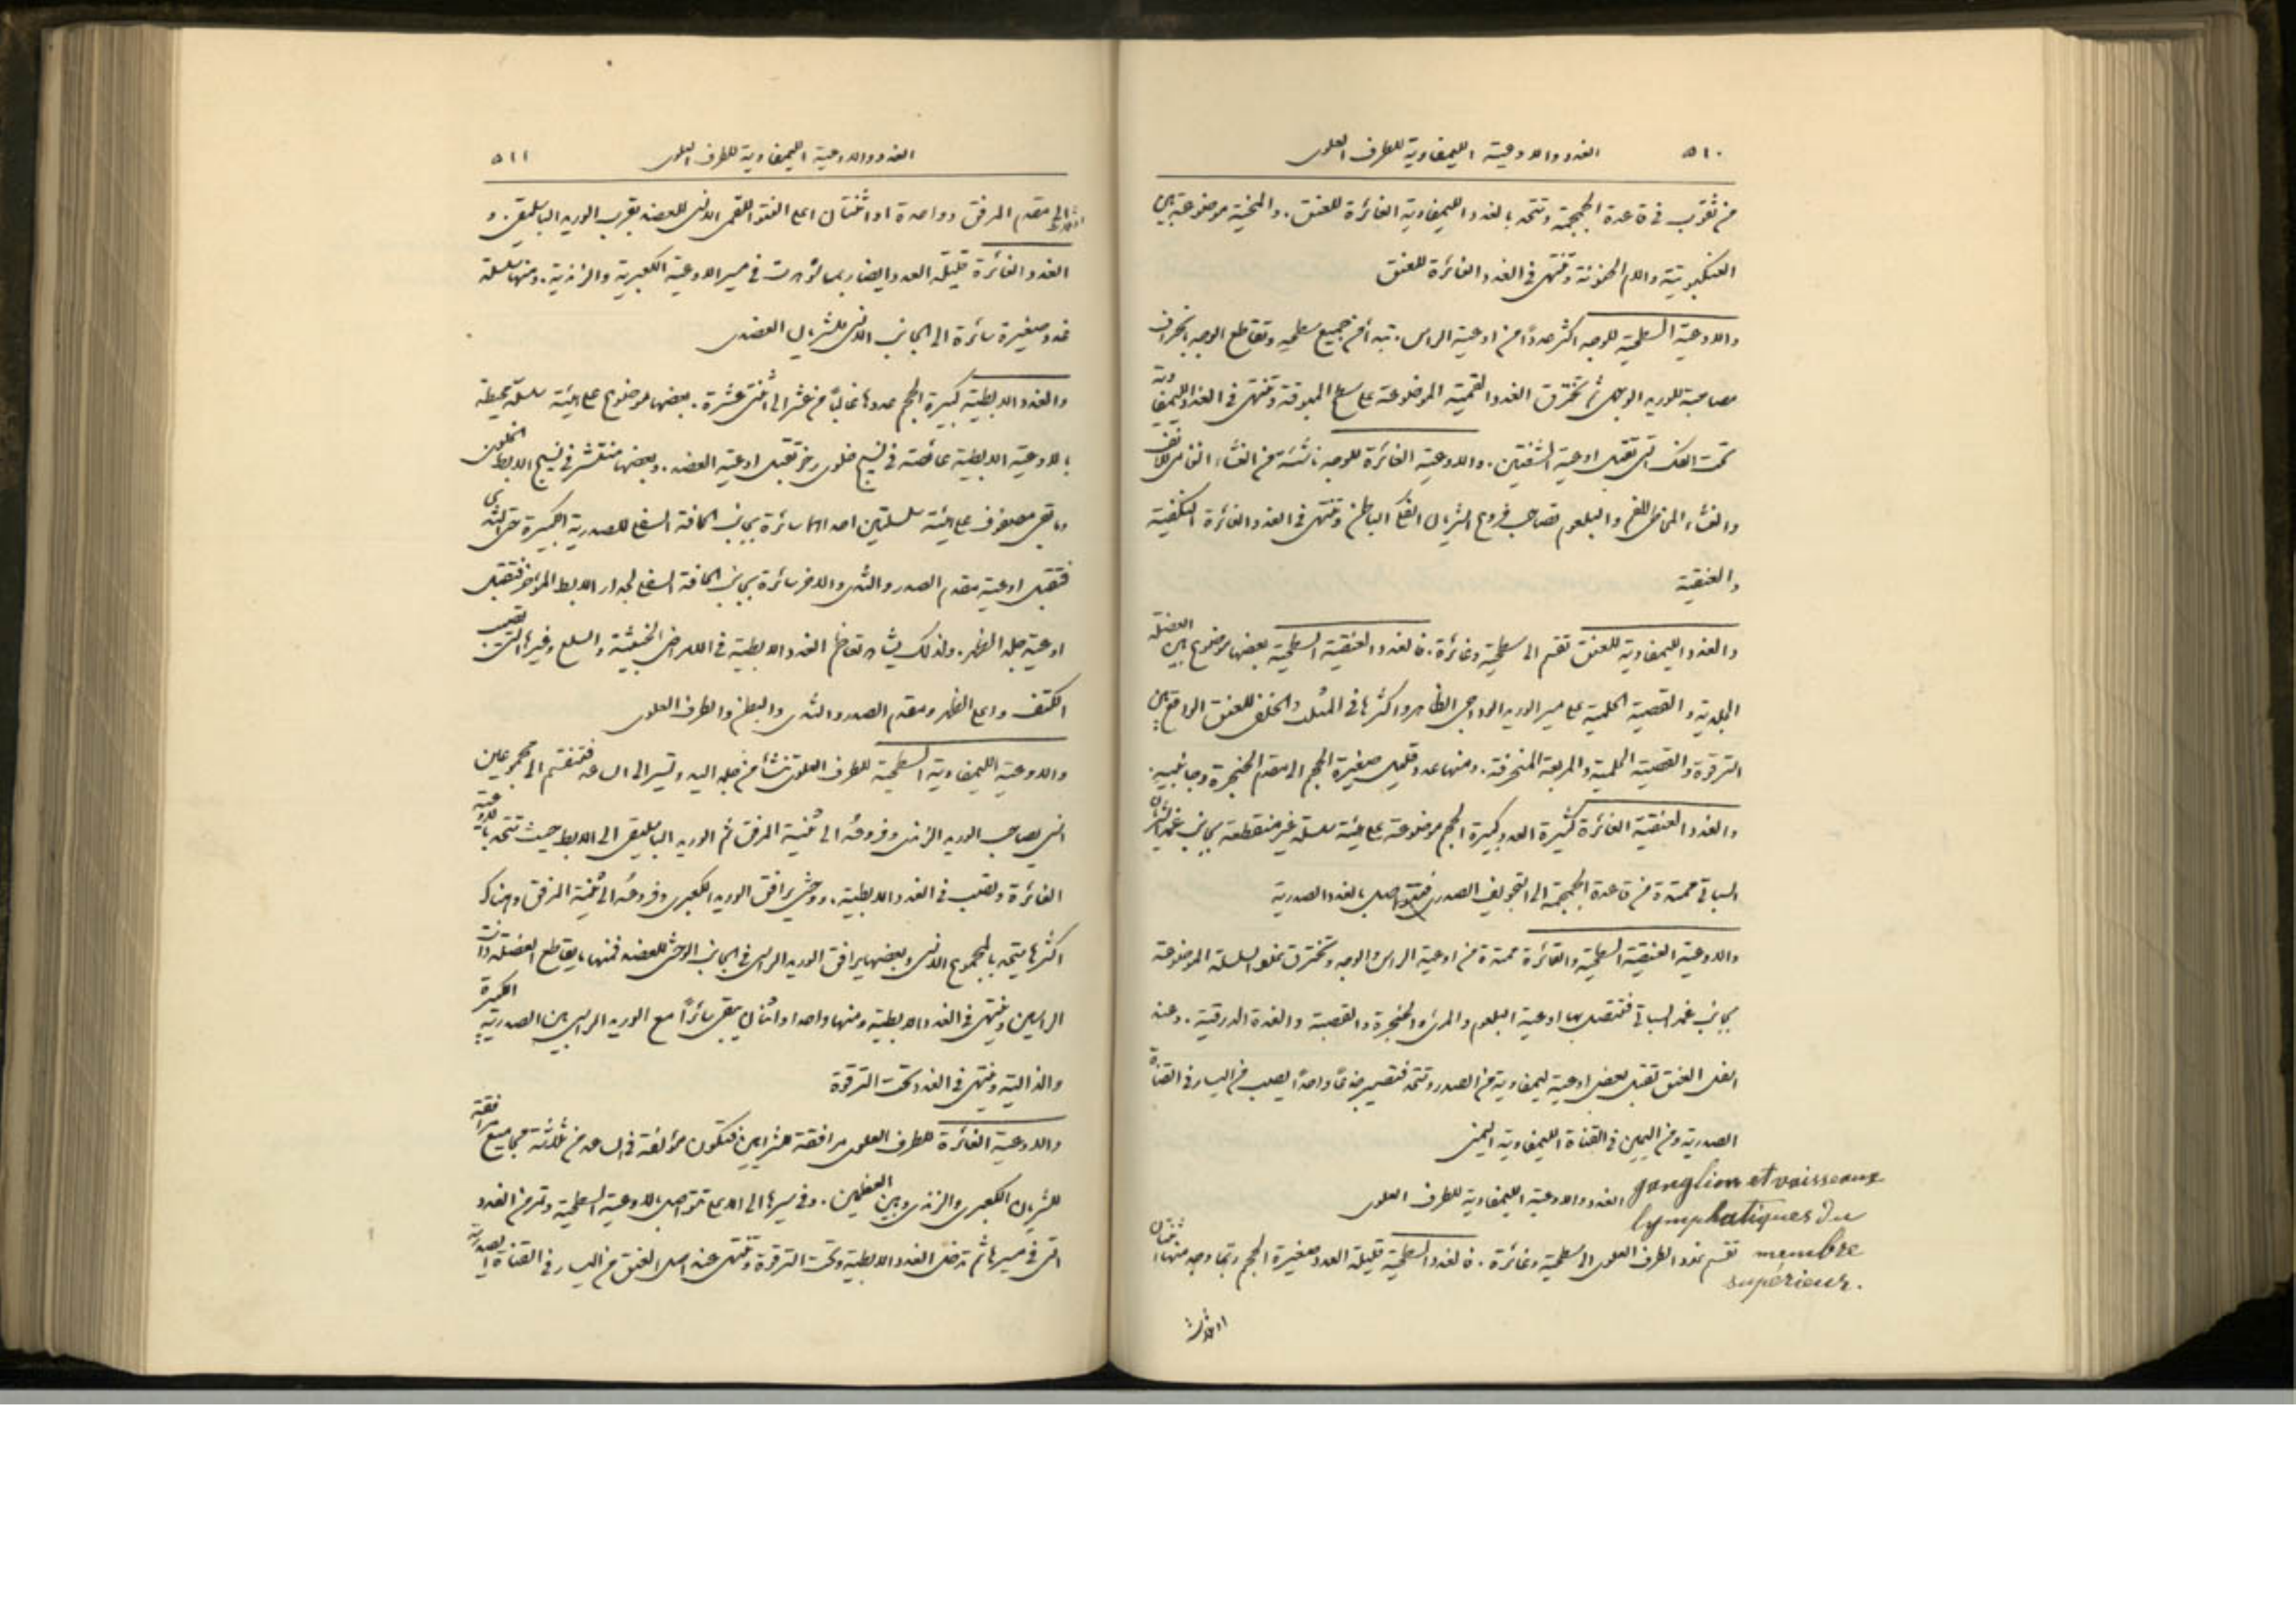 ٥١٠ الغدد والاوعية الليمفاوية للطرف العلوى
من ثقوب فى قاعدة الجمجمة وتتحد بالغدد الليمفاوية الغائرة للعنق. والمخية موضوعة بين
العنكبوتية والام الحنونة وتنتهى فى الغدد الغائرة للعنق
والاوعية السطحية للوجه اكثر عددًا من اوعية الراس. تبدأ من جميع سطحه وتقاطع الوجه بانحراف
مصاحبة للوريد الوجهى ثم تخترق الغدد اللقمية الموضوعة على سطح المبوقة وتنتهى فى الغدد الليمفاوية
تحت الفك التى تقبل اوعية الشفتين. والاوعية الغائرة للوجه ناشئة من الغشاء النخامى للانف
والغشاء المخاطى للفم والبلعوم تصاحب فروع الشريان الفكى الباطن وتنتهى فى الغدد الغائرة النكفية
والعنقية
والغدد الليمفاوية للعنق تقسم الى سطحية وغائرة. فالغدد العنقية السطحية بعضها موضوع بين العضلة
الجلدية والقصية الحلمية على مسير الوريد الوداجى الظاهر واكثرها فى المثلث الخلفى للعنق الواقع بين
الترقوة والقصية الحلمية والمربعة المنحرفة. ومنها عدد قليل صغيرة الحجم الى مقدم الحنجرة وجانبيه.
والغدد العنقية الغائرة كثيرة العدد كبيرة الحجم موضوعة على هيئة سلسلة غير منقطعة بجانب غمد الشريان
السباتى ممتدة من قاعدة الجمجمة الى التجويف الصدرى فتتواصل بالغدد الصدرية
والاوعية العنقية السطحية والغائرة ممتدة من اوعية الراس والوجه وتخترق غدد السلسلة الموضوعة
بجانب غمد السباتى فتتصل بها اوعية البلعوم والمرئ والحنجرة والقصبة والغدة الدرقية. وعند
اسفل العنق تقبل بعض اوعية ليمفاوية من الصدر وتتحد فتصير جذعًا واحدًا يصب من اليسار فى القناة
الصدرية ومن اليمين فى القناة الليمفاوية اليمنى
ganglion et vaisseaux
الغدد والاوعية الليمفاوية للطرف العلوى
lymphatiques du
membre
تقسم غدد الطرف العلوى الى سطحية وغائرة. فالغدد السطحية قليلة العدد صغيرة الحجم ربما وجد منها اثنتان
supérieur.
او ثلاث
الغدد والاوعية الليمفاوية للطرف العلوى ٥١١
او ثلاث الى مقدم المرفق وواحدة او اثنتان اعلى النتوء اللقمى الانسى للعضد بقرب الوريد الباسليقى. و
الغدد الغائرة قليلة العدد ايضا ربما شوهدت فى مسير الاوعية الكعبرية والزندية. ومنها سلسلة
غدد صغيرة سائرة الى الجانب الانسى للشريان العضدى
والغدد الابطية كبيرة الحجم عددها غالبًا من عشر الى اثنتى عشرة. بعضها موضوع على هيئة سلسلة محيطة
بالاوعية الابطية غائصة فى نسيج خلوى رخو تقبل اوعية العضد. وبعضها منتشر فى نسيج الابط الخلوى
وما بقى مصفوف على هيئة سلسلتين احداهما سائرة بجانب الحافة السفلى للصدرية الكبيرة حتى الثدى
فتقبل اوعية مقدم الصدر والثدى والاخرى سائرة بجانب الحافة السفلى لجدار الابط المؤخر فتقبل
اوعية جلد الظهر. ولذلك يشاهد تعاظم الغدد الابطية فى الامراض الخبيثة والسلع وغيرها التى تصيب
الكتف واعلى الظهر ومقدم الصدر والثدى والبطن والطرف العلوى
والاوعية الليمفاوية السطحية للطرف العلوى تنشأ من جلد اليد وتسير الى الساعد فتنقسم الى مجموعين
انسى يصاحب الوريد الزندى وفروعه الى ثنية المرفق ثم الوريد الباسليقى الى الابط حيث تتحد بالاوعية
الغائرة وتصب فى الغدد الابطية. ووحشى يرافق الوريد الكعبرى وفروعه الى ثنية المرفق وهناك
اكثرها يتحد بالمجموع الانسى وبعضها يرافق الوريد الراسى فى الجانب الوحشى للعضد فمنها ما يقاطع العضلة ذات
الراسين وينتهى فى الغدد الابطية ومنها واحد او اثنان يبقى سائرًا مع الوريد الراسى بين الصدرية الكبيرة
والدالية وينتهى فى الغدد تحت الترقوة
والاوعية الغائرة للطرف العلوى مرافقة للشرايين فتكون مؤلفة فى الساعد من ثلاثة مجاميع مرافقة
للشريان الكعبرى والزندى وبين العظمين. وفى سيرها الى الاعلى تتواصل بالاوعية السطحية وتمر من الغدد
التى فى مسيرها ثم تدخل الغدد الابطية وتحت الترقوة وتنتهى عند اصل العنق من اليسار فى القناة الصدرية